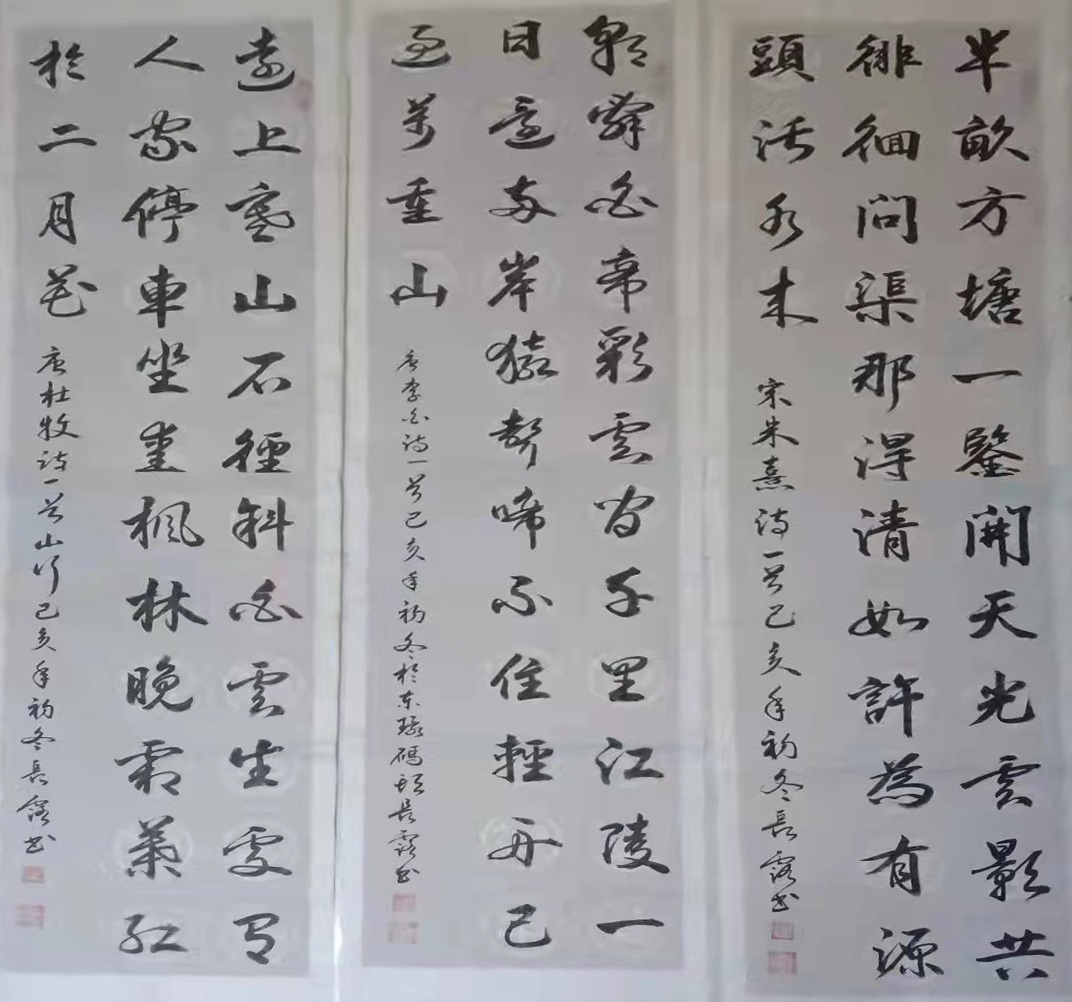 半畝方塘一鑒開天光雲影共
徘徊問渠那得清如許為有源
頭活水来
宋朱熹詩一首己亥年初冬長書
朝辭白帝彩雲間千里江陵一
日還兩岸猿聲啼不住輕舟已
過萬重山
唐李白詩一首己亥年初冬於東碼頭長書
遠上寒山石徑斜白雲生處有
人家停車坐愛楓林晚霜葉紅
於二月花
唐杜牧詩一首山行己亥年初冬長書